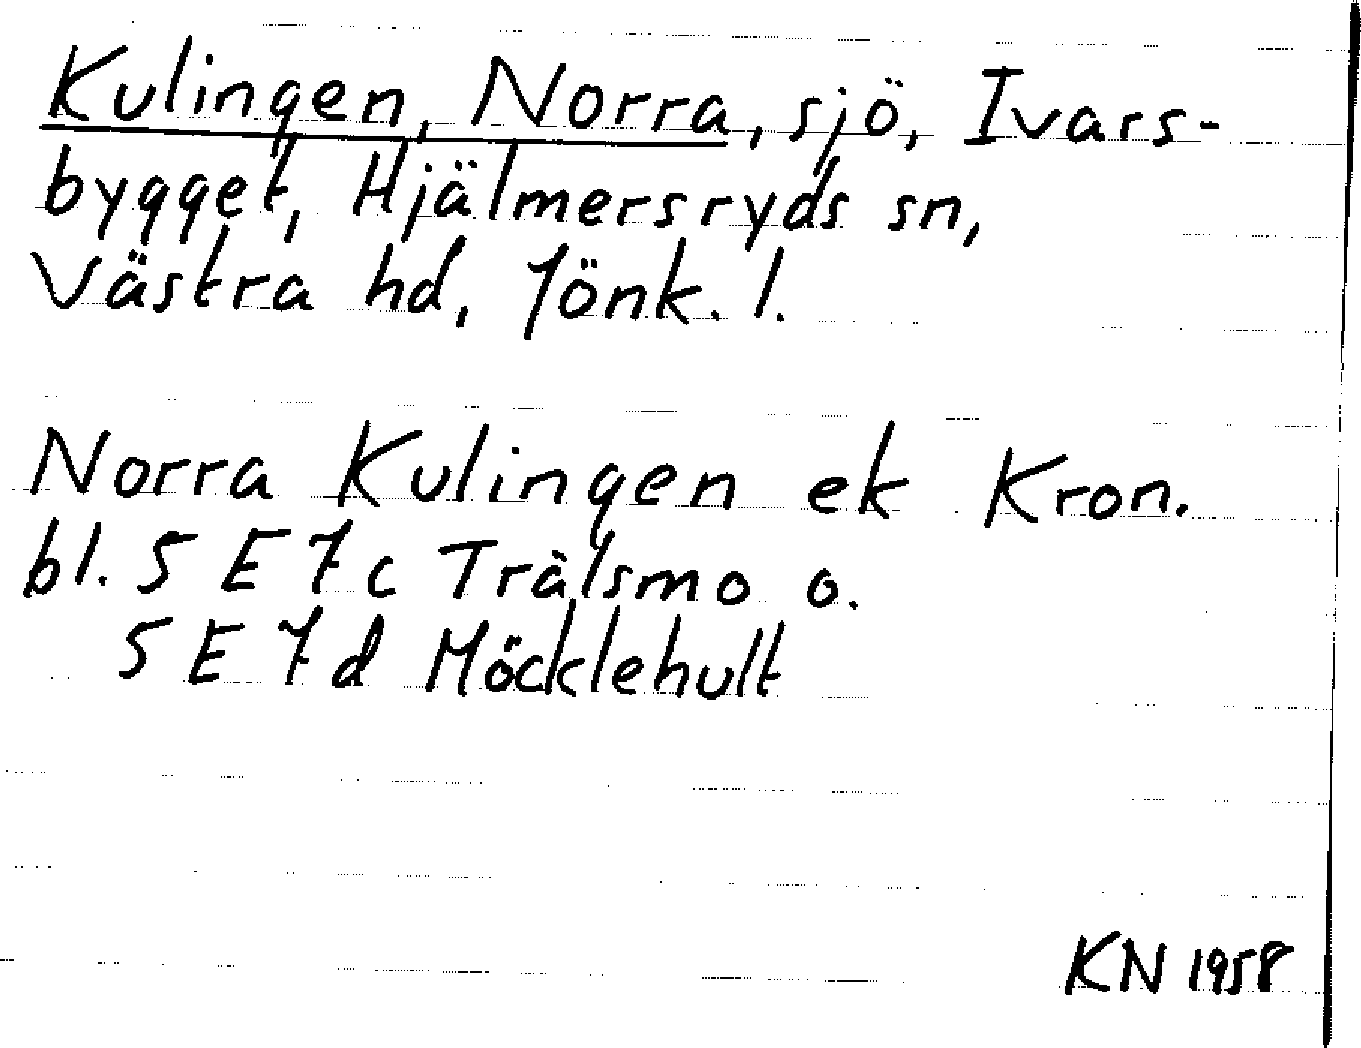 Kulingen, Norra, sjö, Ivars-
bygget, Hjälmersryds sn,
Västra hd, Jönk. l.
Norra Kulingen ek Kron.
bl. 5 E 7 c Trälsmo o.
5 E 7 d Möcklehult
KN 1958